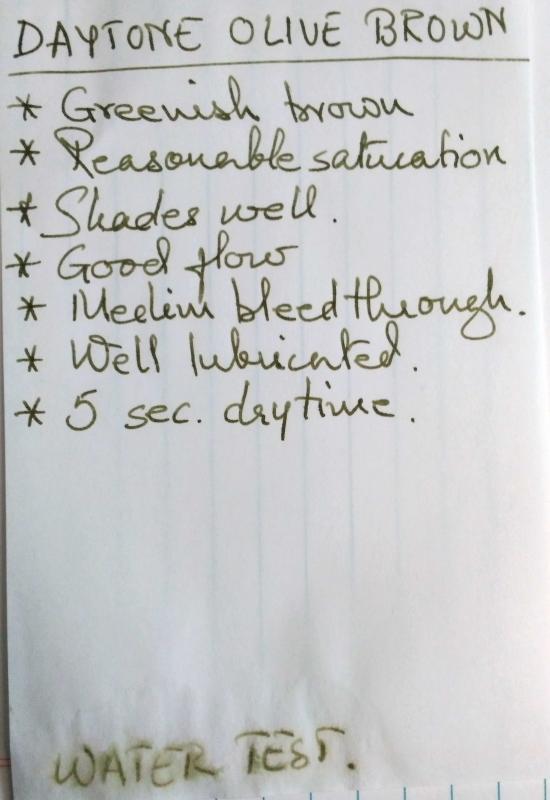 DAYTONE OLIVE BROWN
* Greenish brown
* Reasonable saturation
* Shades well.
* Good flow
* Medium bleedthrough.
* Well lubricated.
* 5 sec. drytime.
WATER TEST.